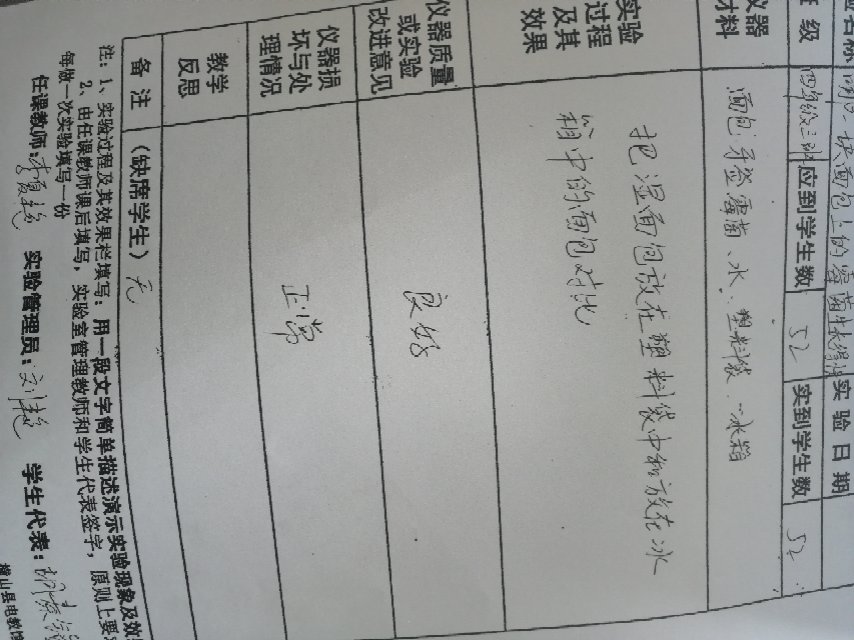 实验日期
应到学生数 52 实到学生数 52
面包 牙签 霉菌、水、塑料袋、冰箱
实验
过程
及其
效果
把湿面包放在塑料袋中和放在冰
箱中的面包对比
仪器质量
或实验
改进意见
良好
仪器损
坏与处
理情况
正常
教学
反思
备注 (缺席学生) 无
注：1、实验过程及其效果栏填写：用一段文字简单描述演示实验现象及效
2、由任课教师课后填写，实验室管理教师和学生代表签字，原则上要
每做一次实验填写一份
任课教师： 实验管理员： 学生代表：